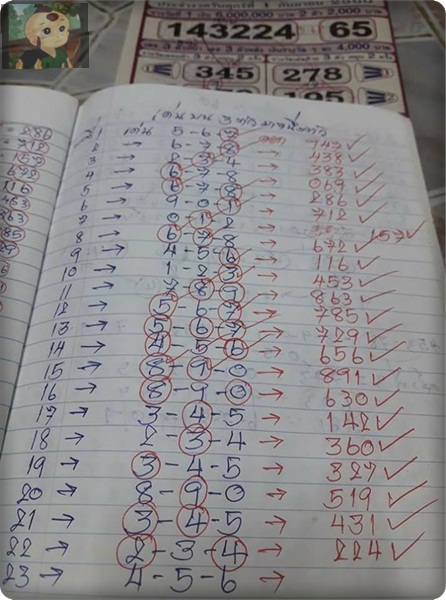 143224 65
345 278
195
เด่นบน 3 ตัว
286
712
157
672
116
453
863
785
1 เด่น 5-6-7 → 947 ✓
2 → 6-7-8 → 438 ✓
3 → 2-3-4 → 383 ✓
4 → 6-7-8 → 069 ✓
5 → 6-7-8 → 286 ✓
6 → 9-0-1 → 712 ✓
7 → 0-1-2 → 157 ✓
8 → 6-7-8 → 672 ✓
9 → 4-5-6 → 116 ✓
10 → 1-2-3 → 453 ✓
11 → 7-8-9 → 863 ✓
12 → 5-6-7 → 785 ✓
13 → 5-6-7 → 729 ✓
14 → 4-5-6 → 656 ✓
15 → 8-9-0 → 891 ✓
16 → 8-9-0 → 630 ✓
17 → 3-4-5 → 142 ✓
18 → 2-3-4 → 360 ✓
19 → 3-4-5 → 327 ✓
20 → 8-9-0 → 519 ✓
21 → 3-4-5 → 431 ✓
22 → 2-3-4 → 224 ✓
23 → 4-5-6 →